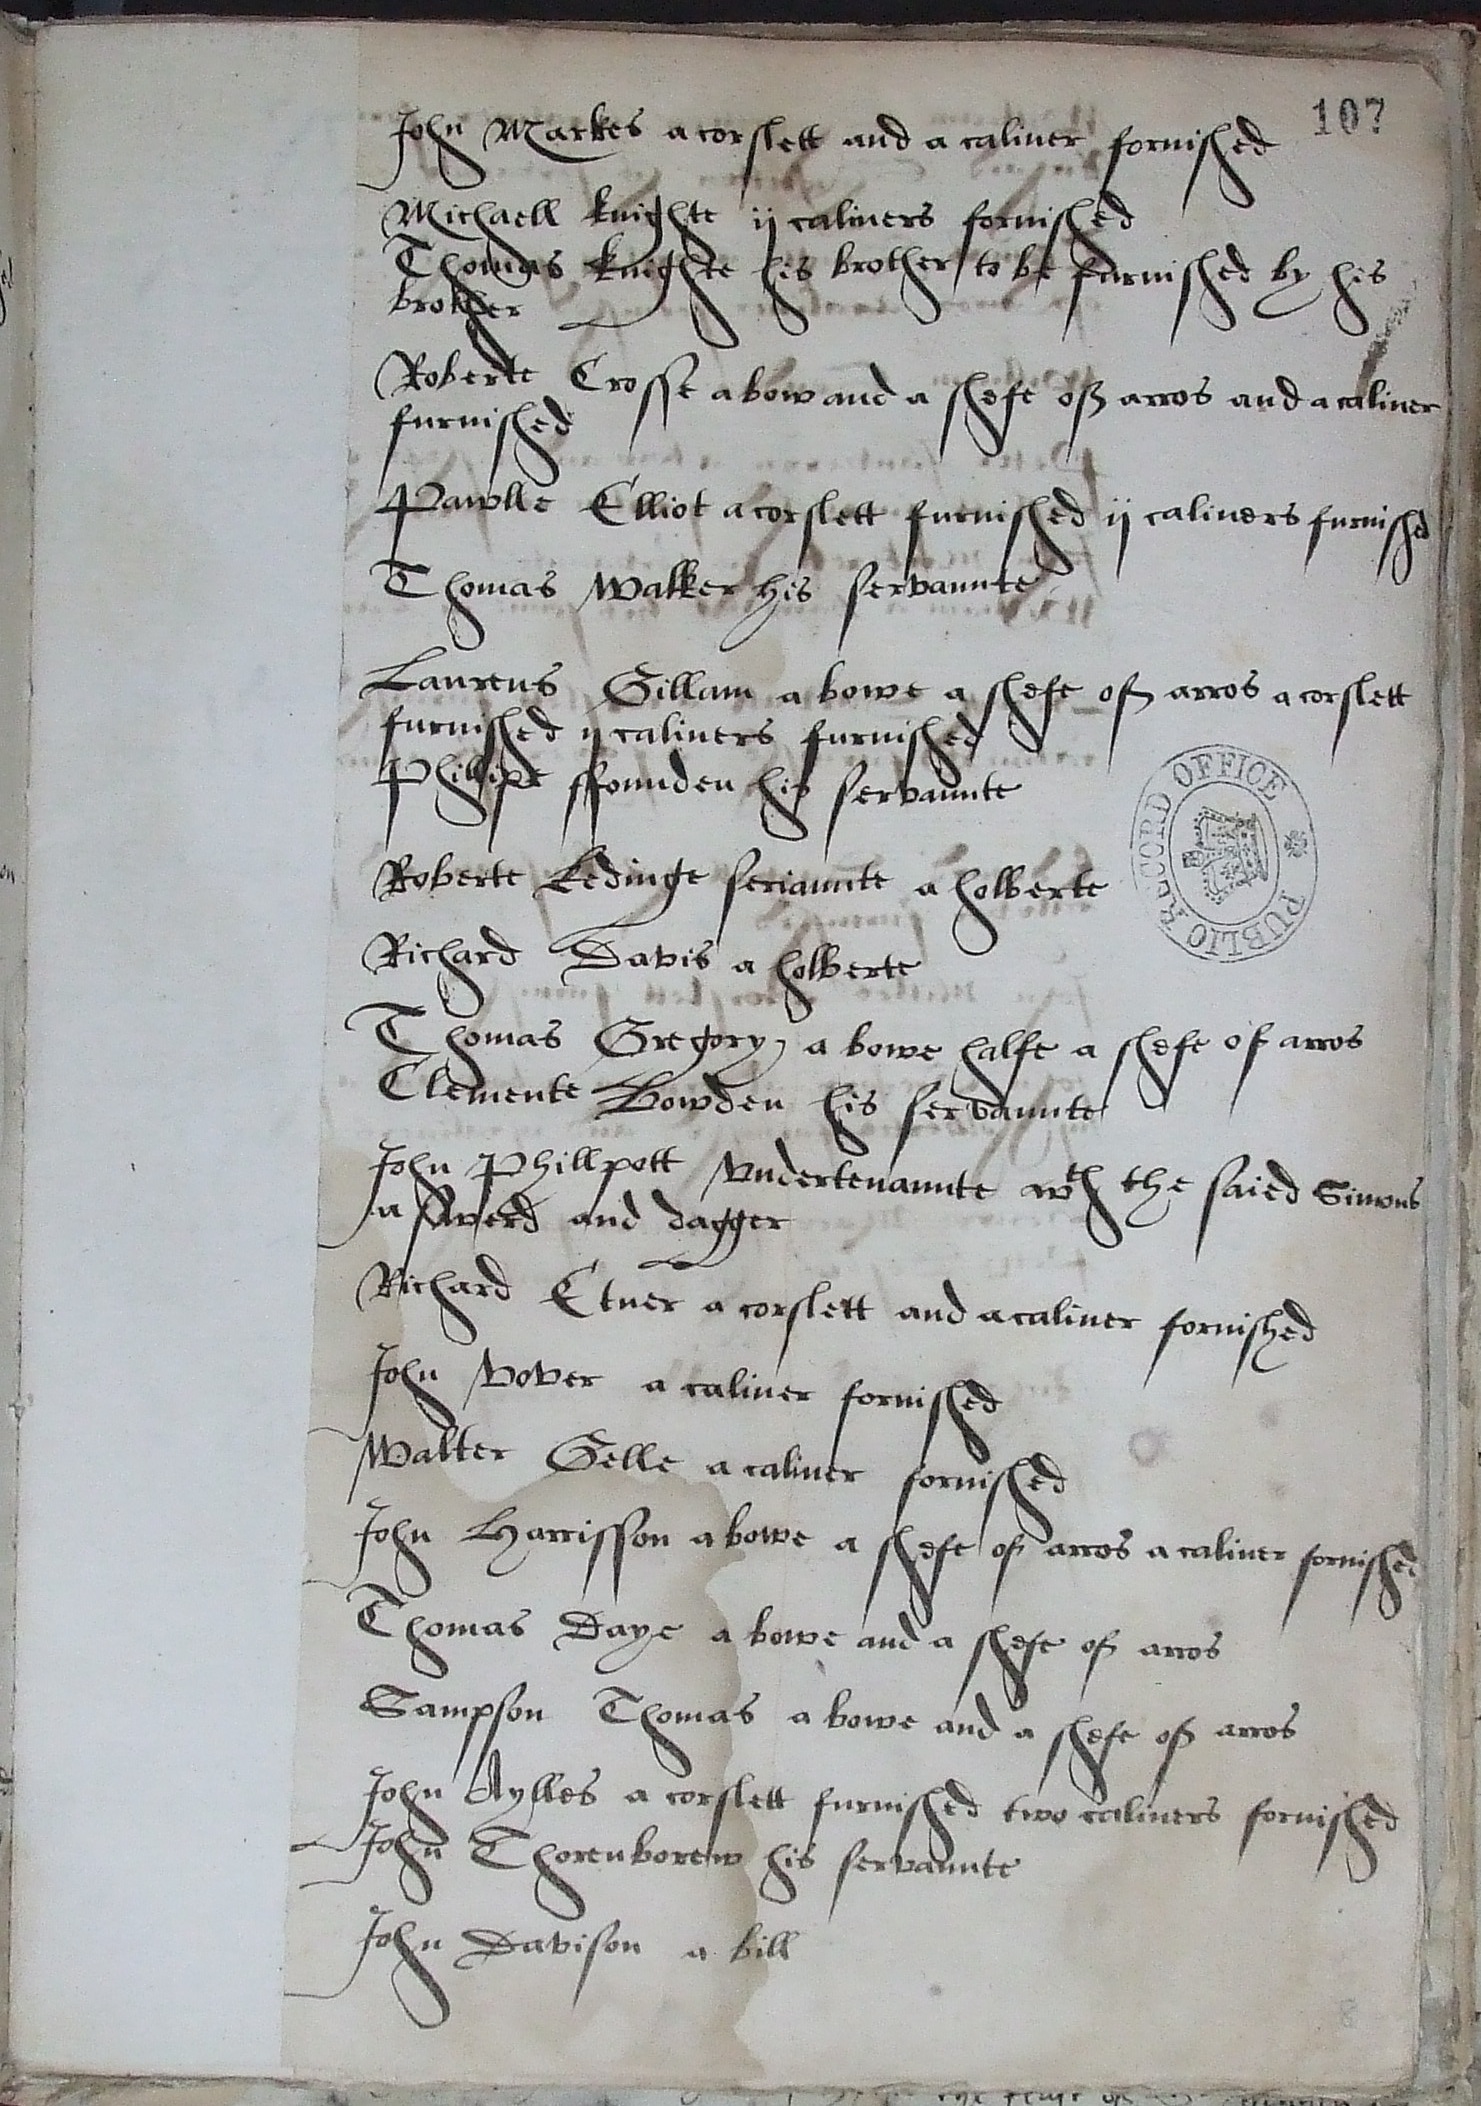 107
John Markes a corslett and a caliuer fornished
Michaell knighte ij caliuers fornished
Thomas knighte his brother to be furnished by his
brother
Roberte Crosse a bow and a shefe off arros and a caliuer
furnished
Pawlle Elliot a corslett furnished ij caliuers furnishd
Thomas Walker his servannte
Laurens Gillam a bowe a shefe off arros a corslett
furnished ij caliuers furnished
Phillipe ffounden his servannte
Roberte Kedinge seriannte a holberte
Richard Davis a holberte
Thomas Gregory a bowe halfe a shefe of arros
Clemente Bowden his servannte
John Phillpott vndertenannte wth the saied Simons
a swerd and dagger
Richard Etuer a corslett and a caliuer fornished
John Vover a caliuer fornished
Walter Gelle a caliuer fornished
John Harrisson a bowe a shefe of arros a caliuer fornished
Thomas Daye a bowe and a shefe of arros
Sampson Thomas a bowe and a shefe off arros
John Aylles a corslett furnished two caliuers fornished
John Thorenborew his servannte
John Davison a bill
PUBLIC RECORD OFFICE